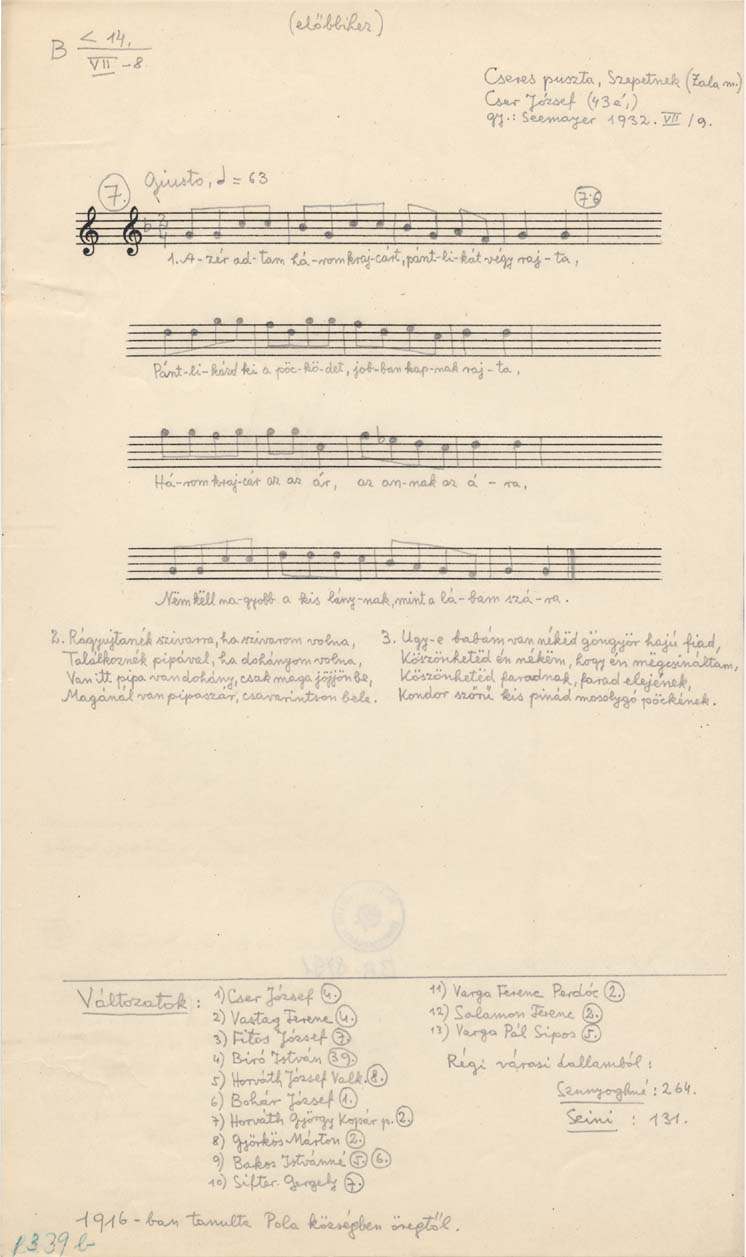 (előbbihez)
B < 14.
VII -8
Cseres puszta, Szepetnek (Zala m.)
Cser József (43 é.)
gy.: Seemayer 1932. VII/9.
7. Giusto, = 63
7.6
2
4
1. A-zér ad-tam há-rom kraj-cárt, pánt-li-kát végy raj-ta,
Pánt-li-kázd ki a pöc-kö-det, job-ban kap-nak raj-ta,
Há-rom kraj-cár az az ár, az an-nak az á-ra,
Nëm këll na-gyobb a kis lány-nak, mint a lá-bam szá-ra.
2. Rágyujtanék szivarra, ha szivarom volna,
Találkoznék pipával, ha dohányom volna,
Van itt pipa van dohány, csak maga jöjjön be,
Magánál van pipaszár, csavarintson bele.
3. Ugy-e babám van nékëd göngyör hajú fiad,
Köszönhetëd én nékëm, hogy én mëgcsináltam,
Köszönhetëd faradnak, farad elejének,
Kondor szőrű kis pinád mosolygó pöckének.
Változatok:
1) Cser József 4.
2) Vastag Ferenc 4.
3) Fitos József 7.
4) Biró István 39.
5) Horváth József Valk. 8.
6) Bohár József 1.
7) Horváth György Kopár p. 2.
8) Györkös Márton 2.
9) Bakos Istvánné 5. 6.
10) Sifter Gergely 7.
11) Varga Ferenc Perdóc 2.
12) Salamon Ferenc 2.
13) Varga Pál Sipos 5.
Régi városi dallamból:
Szunyoghné: 264.
Seini : 131.
1916-ban tanulta Pola községben öregtől.
1339 b